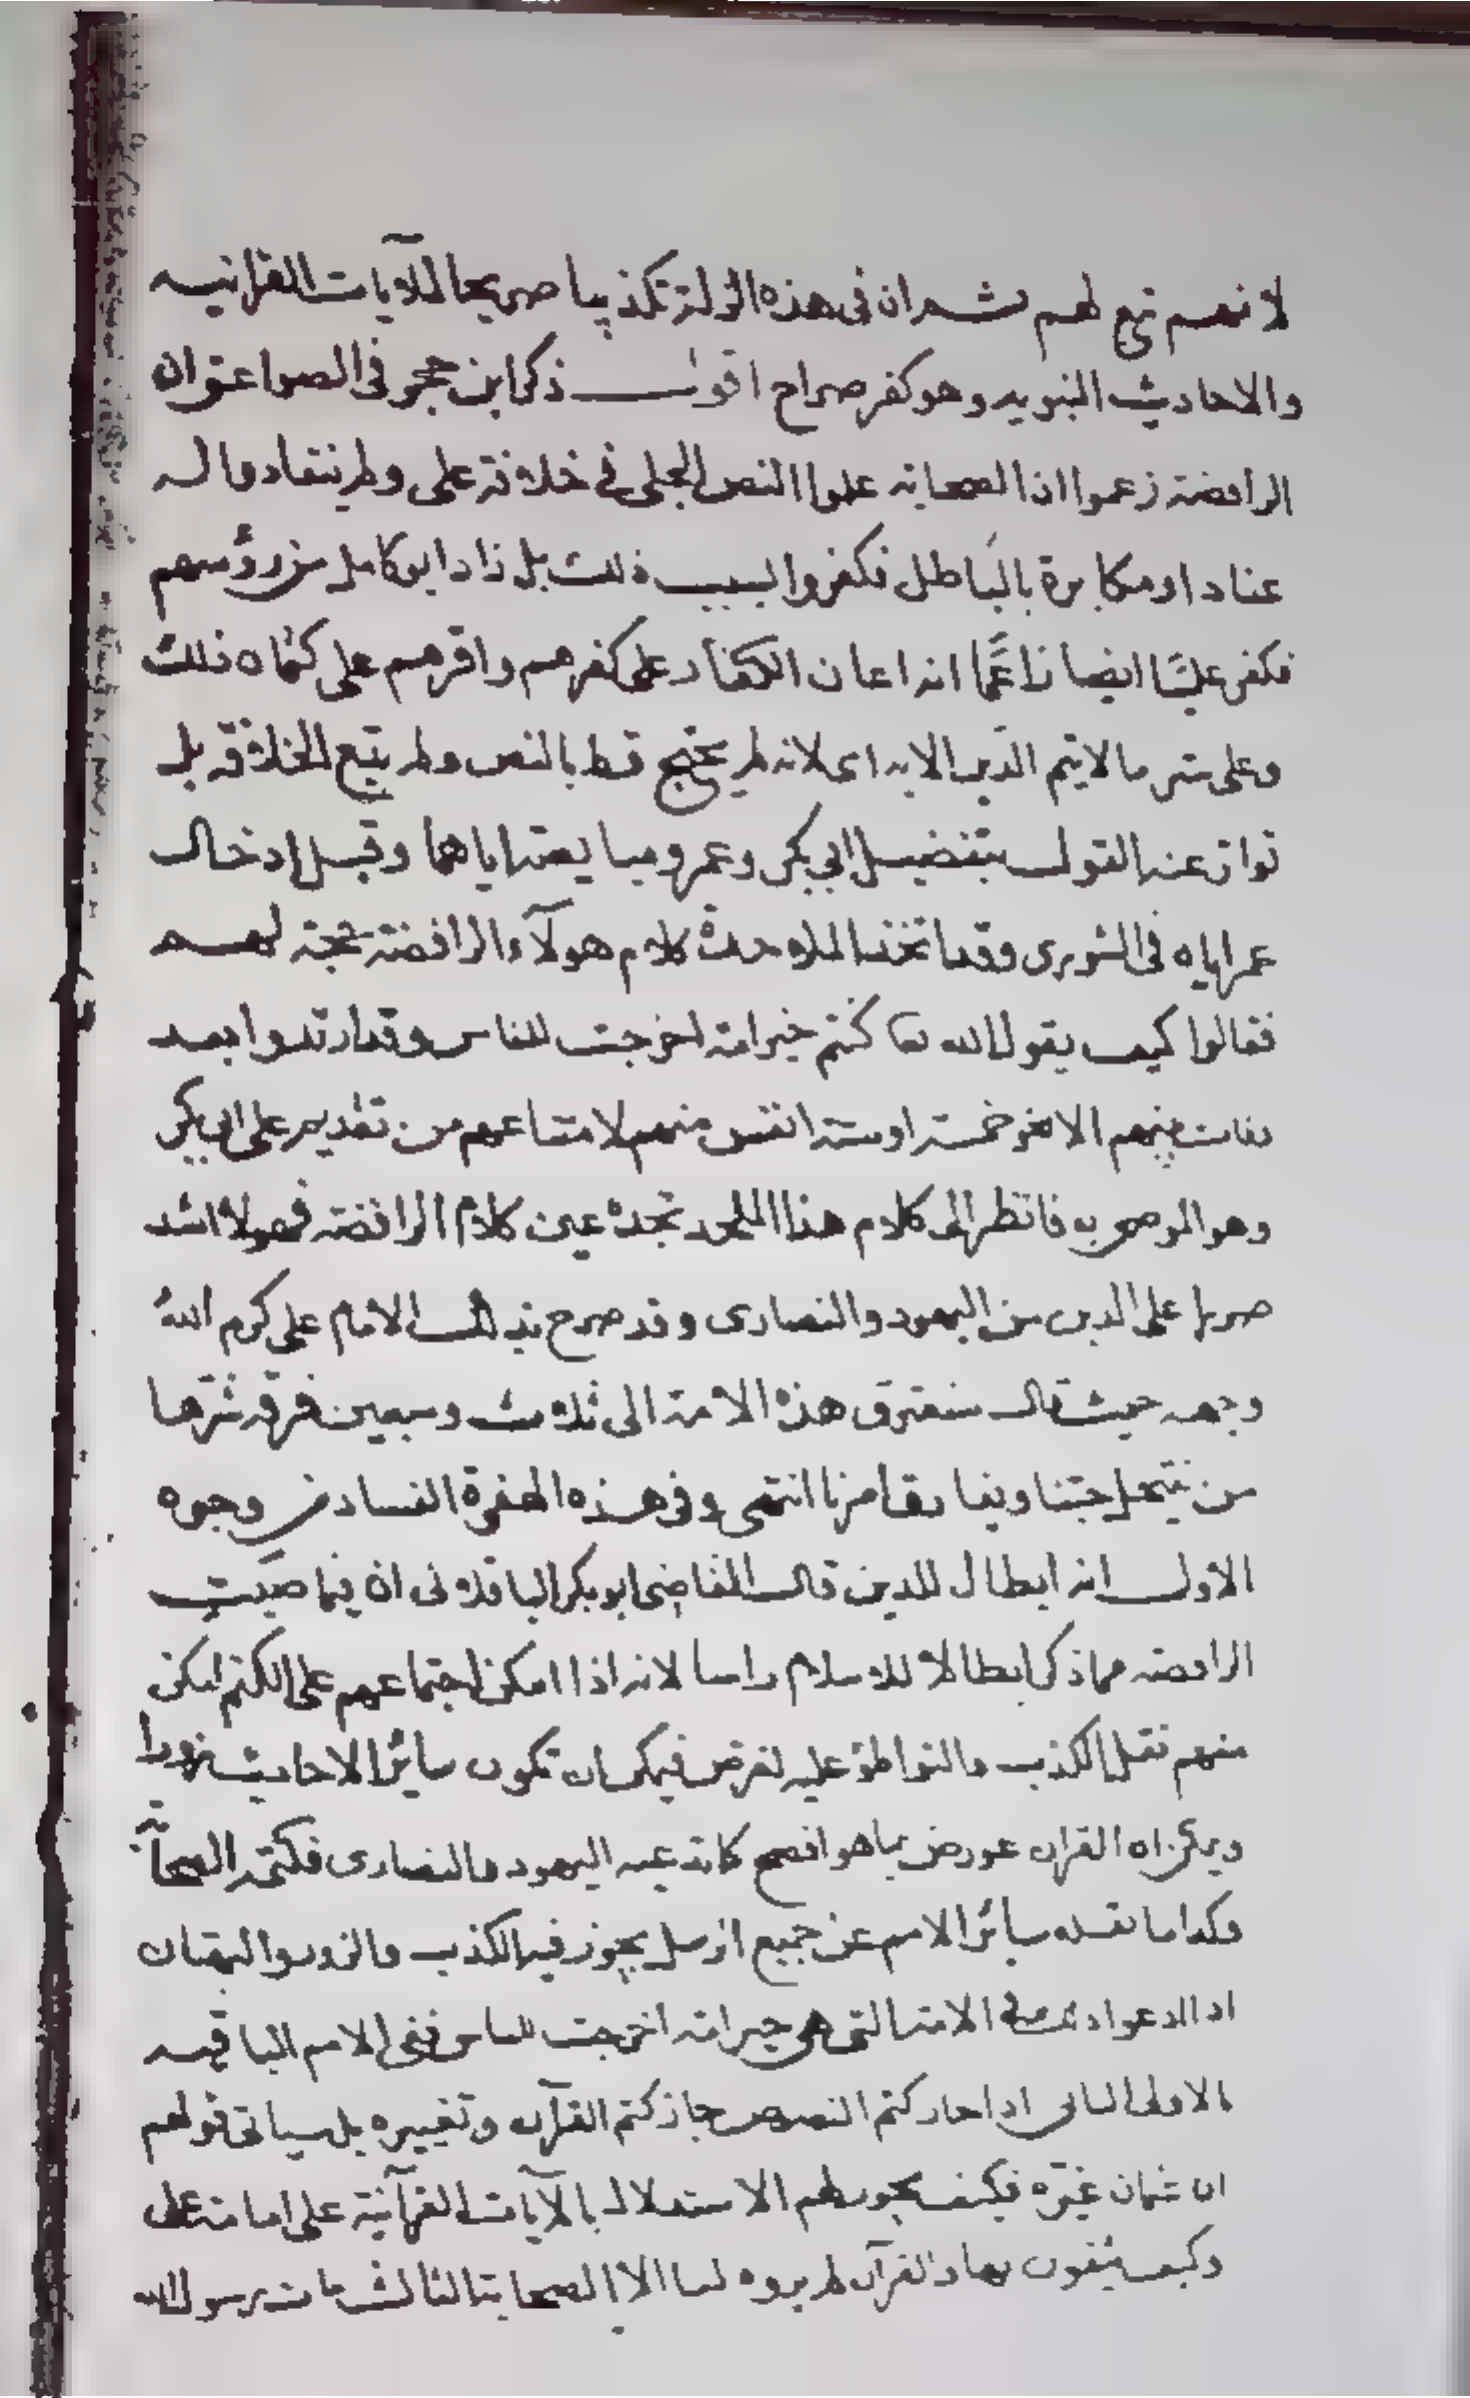 لانهم تبع لهم ثم ان في هذه الزلة تكذيبا صريحا للآيات القرانيه
والاحاديث النبويه وهو كفر صراح اقول ذكر ابن حجر في الصواعق ان
الرافضة زعموا ان الصحابة علموا النص الجلي في خلافة علي ولم ينقادوا له
عنادا ومكابرة بالباطل فكفروا بسبب ذلك بل زاد ابو كامل من رؤسهم
فكفر عليًّا ايضا زاعمًا انه اعان الكفار على كفرهم واقرهم على كتمان ذلك
وعلى ستر ما لا يتم الدين الا به اى لانه لم يحتج قط بالنص ولم يتبع الخلافة بل
تواتر عنه القول بتفضيل ابي بكر وعمر ومبايعته اياهما وقبل ادخال
عمر اياه في الشورى وقد اتخذ الملاحدة كلام هولآء الرافضة حجة لهم
فقالوا كيف يقول الله تعا كنتم خير امة اخرجت للناس وقد ارتدوا بعد
نبيهم الا نحو خمسة او ستة انفس منهم لامتناعهم من تقديم على ابي بكر
وهو الموصى به فانظر الى كلام هذا الملحد تجده عين كلام الرافضة فهولا اشد
ضررا على الدين من اليهود والنصارى وقد صرح بذلك الامام علي كرم الله
وجهه حيث قال ستفترق هذه الامة الى ثلاث وسبعين فرقة شرها
من ينتحل حبنا ويفارق امرنا انتهى وفي هذه الهفوة الفساد من وجوه
الاول انه ابطال للدين قال القاضي ابو بكر الباقلاني ان فيما
الرافضه مما ذكر ابطالا للاسلام راسا لانه اذا امكن اجتماعهم على الكتم امكن
منهم نقل الكذب والتواطؤ عليه لغرض فيمكن ان تكون سائر الاحاديث زورا
ويمكن ان القران عورض بما هو افصح كما تدعيه اليهود والنصارى فكتمه الصحآبة
وكذا ما نقله سائر الامم عن جميع الرسل يجوز فيه الكذب والزور والبهتان
اذا ادعوا ذلك في الامة التي هي خير امة اخرجت للناس ففي الامم الباقيه
بالاولى الثاني اذا جاز كتم النصوص جاز كتم القرآن وتغييره بل سياتي قولهم
ان عثمان غيّره فكيف يجوز لهم الاستدلال بالآيات القرآنية على امامة علي
وكيف يثقون بها والقرآن لم يروه لنا الا الصحابة الثالث مات رسول الله